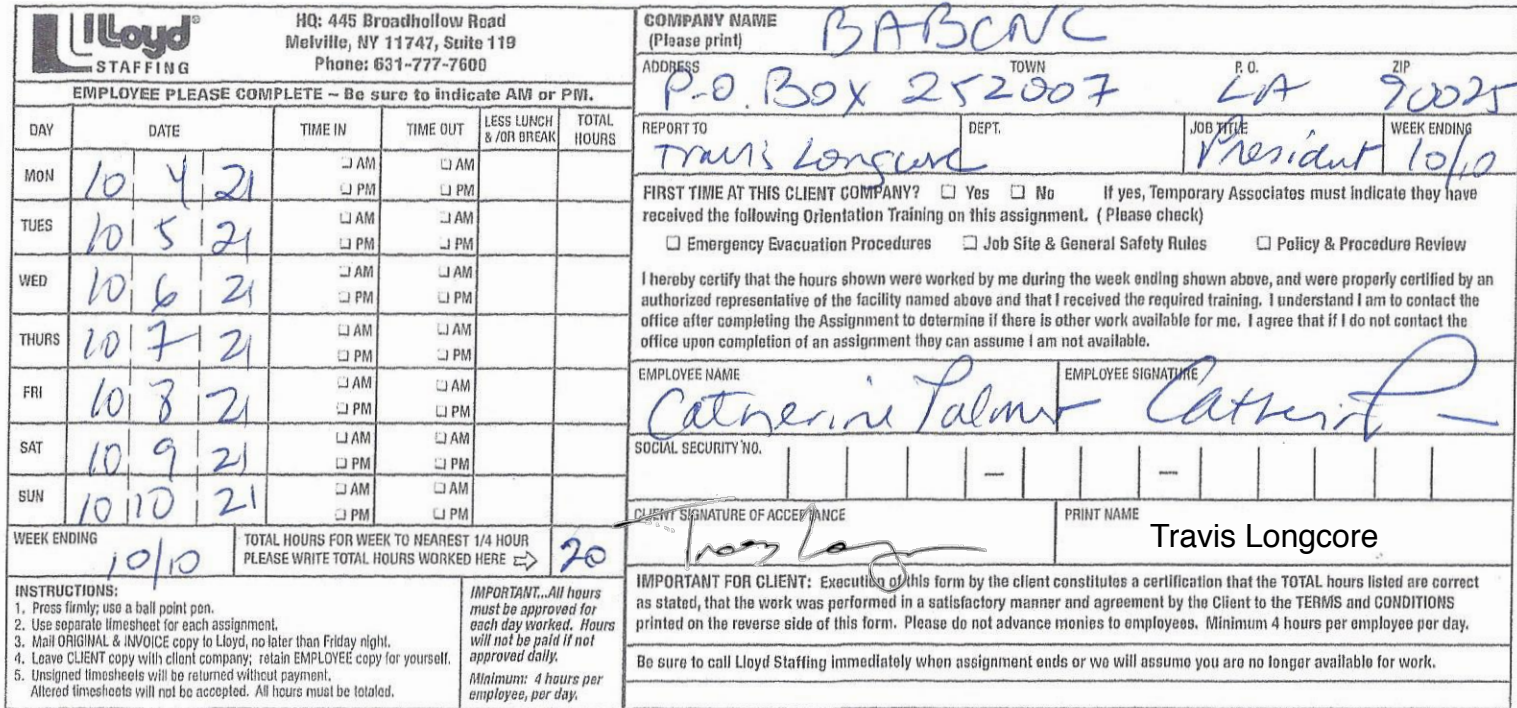 Lloyd®
STAFFING
HQ: 445 Broadhollow Road
Melville, NY 11747, Suite 119
Phone: 631-777-7600
EMPLOYEE PLEASE COMPLETE – Be sure to indicate AM or PM.
DAY DATE TIME IN TIME OUT LESS LUNCH & /OR BREAK TOTAL HOURS
MON 10 4 21 ☐ AM ☐ AM
☐ PM ☐ PM
TUES 10 5 21 ☐ AM ☐ AM
☐ PM ☐ PM
WED 10 6 21 ☐ AM ☐ AM
☐ PM ☐ PM
THURS 10 7 21 ☐ AM ☐ AM
☐ PM ☐ PM
FRI 10 8 21 ☐ AM ☐ AM
☐ PM ☐ PM
SAT 10 9 21 ☐ AM ☐ AM
☐ PM ☐ PM
SUN 10 10 21 ☐ AM ☐ AM
☐ PM ☐ PM
WEEK ENDING
10/10
TOTAL HOURS FOR WEEK TO NEAREST 1/4 HOUR
PLEASE WRITE TOTAL HOURS WORKED HERE ⇨ 20
INSTRUCTIONS:
1. Press firmly; use a ball point pen.
2. Use separate timesheet for each assignment.
3. Mail ORIGINAL & INVOICE copy to Lloyd, no later than Friday night.
4. Leave CLIENT copy with client company; retain EMPLOYEE copy for yourself.
5. Unsigned timesheets will be returned without payment.
Altered timesheets will not be accepted. All hours must be totaled.
IMPORTANT...All hours
must be approved for
each day worked. Hours
will not be paid if not
approved daily.
Minimum: 4 hours per
employee, per day.
COMPANY NAME
(Please print)
BABCNC
ADDRESS TOWN P. O. ZIP
P.O. Box 252007 LA 90025
REPORT TO DEPT. JOB TITLE WEEK ENDING
Travis Longcore President 10/10
FIRST TIME AT THIS CLIENT COMPANY? ☐ Yes ☐ No If yes, Temporary Associates must indicate they have
received the following Orientation Training on this assignment. ( Please check)
☐ Emergency Evacuation Procedures ☐ Job Site & General Safety Rules ☐ Policy & Procedure Review
I hereby certify that the hours shown were worked by me during the week ending shown above, and were properly certified by an
authorized representative of the facility named above and that I received the required training. I understand I am to contact the
office after completing the Assignment to determine if there is other work available for me. I agree that if I do not contact the
office upon completion of an assignment they can assume I am not available.
EMPLOYEE NAME EMPLOYEE SIGNATURE
Catherine Palmer
SOCIAL SECURITY NO.
CLIENT SIGNATURE OF ACCEPTANCE PRINT NAME
Travis Longcore
IMPORTANT FOR CLIENT: Execution of this form by the client constitutes a certification that the TOTAL hours listed are correct
as stated, that the work was performed in a satisfactory manner and agreement by the Client to the TERMS and CONDITIONS
printed on the reverse side of this form. Please do not advance monies to employees. Minimum 4 hours per employee per day.
Be sure to call Lloyd Staffing immediately when assignment ends or we will assume you are no longer available for work.